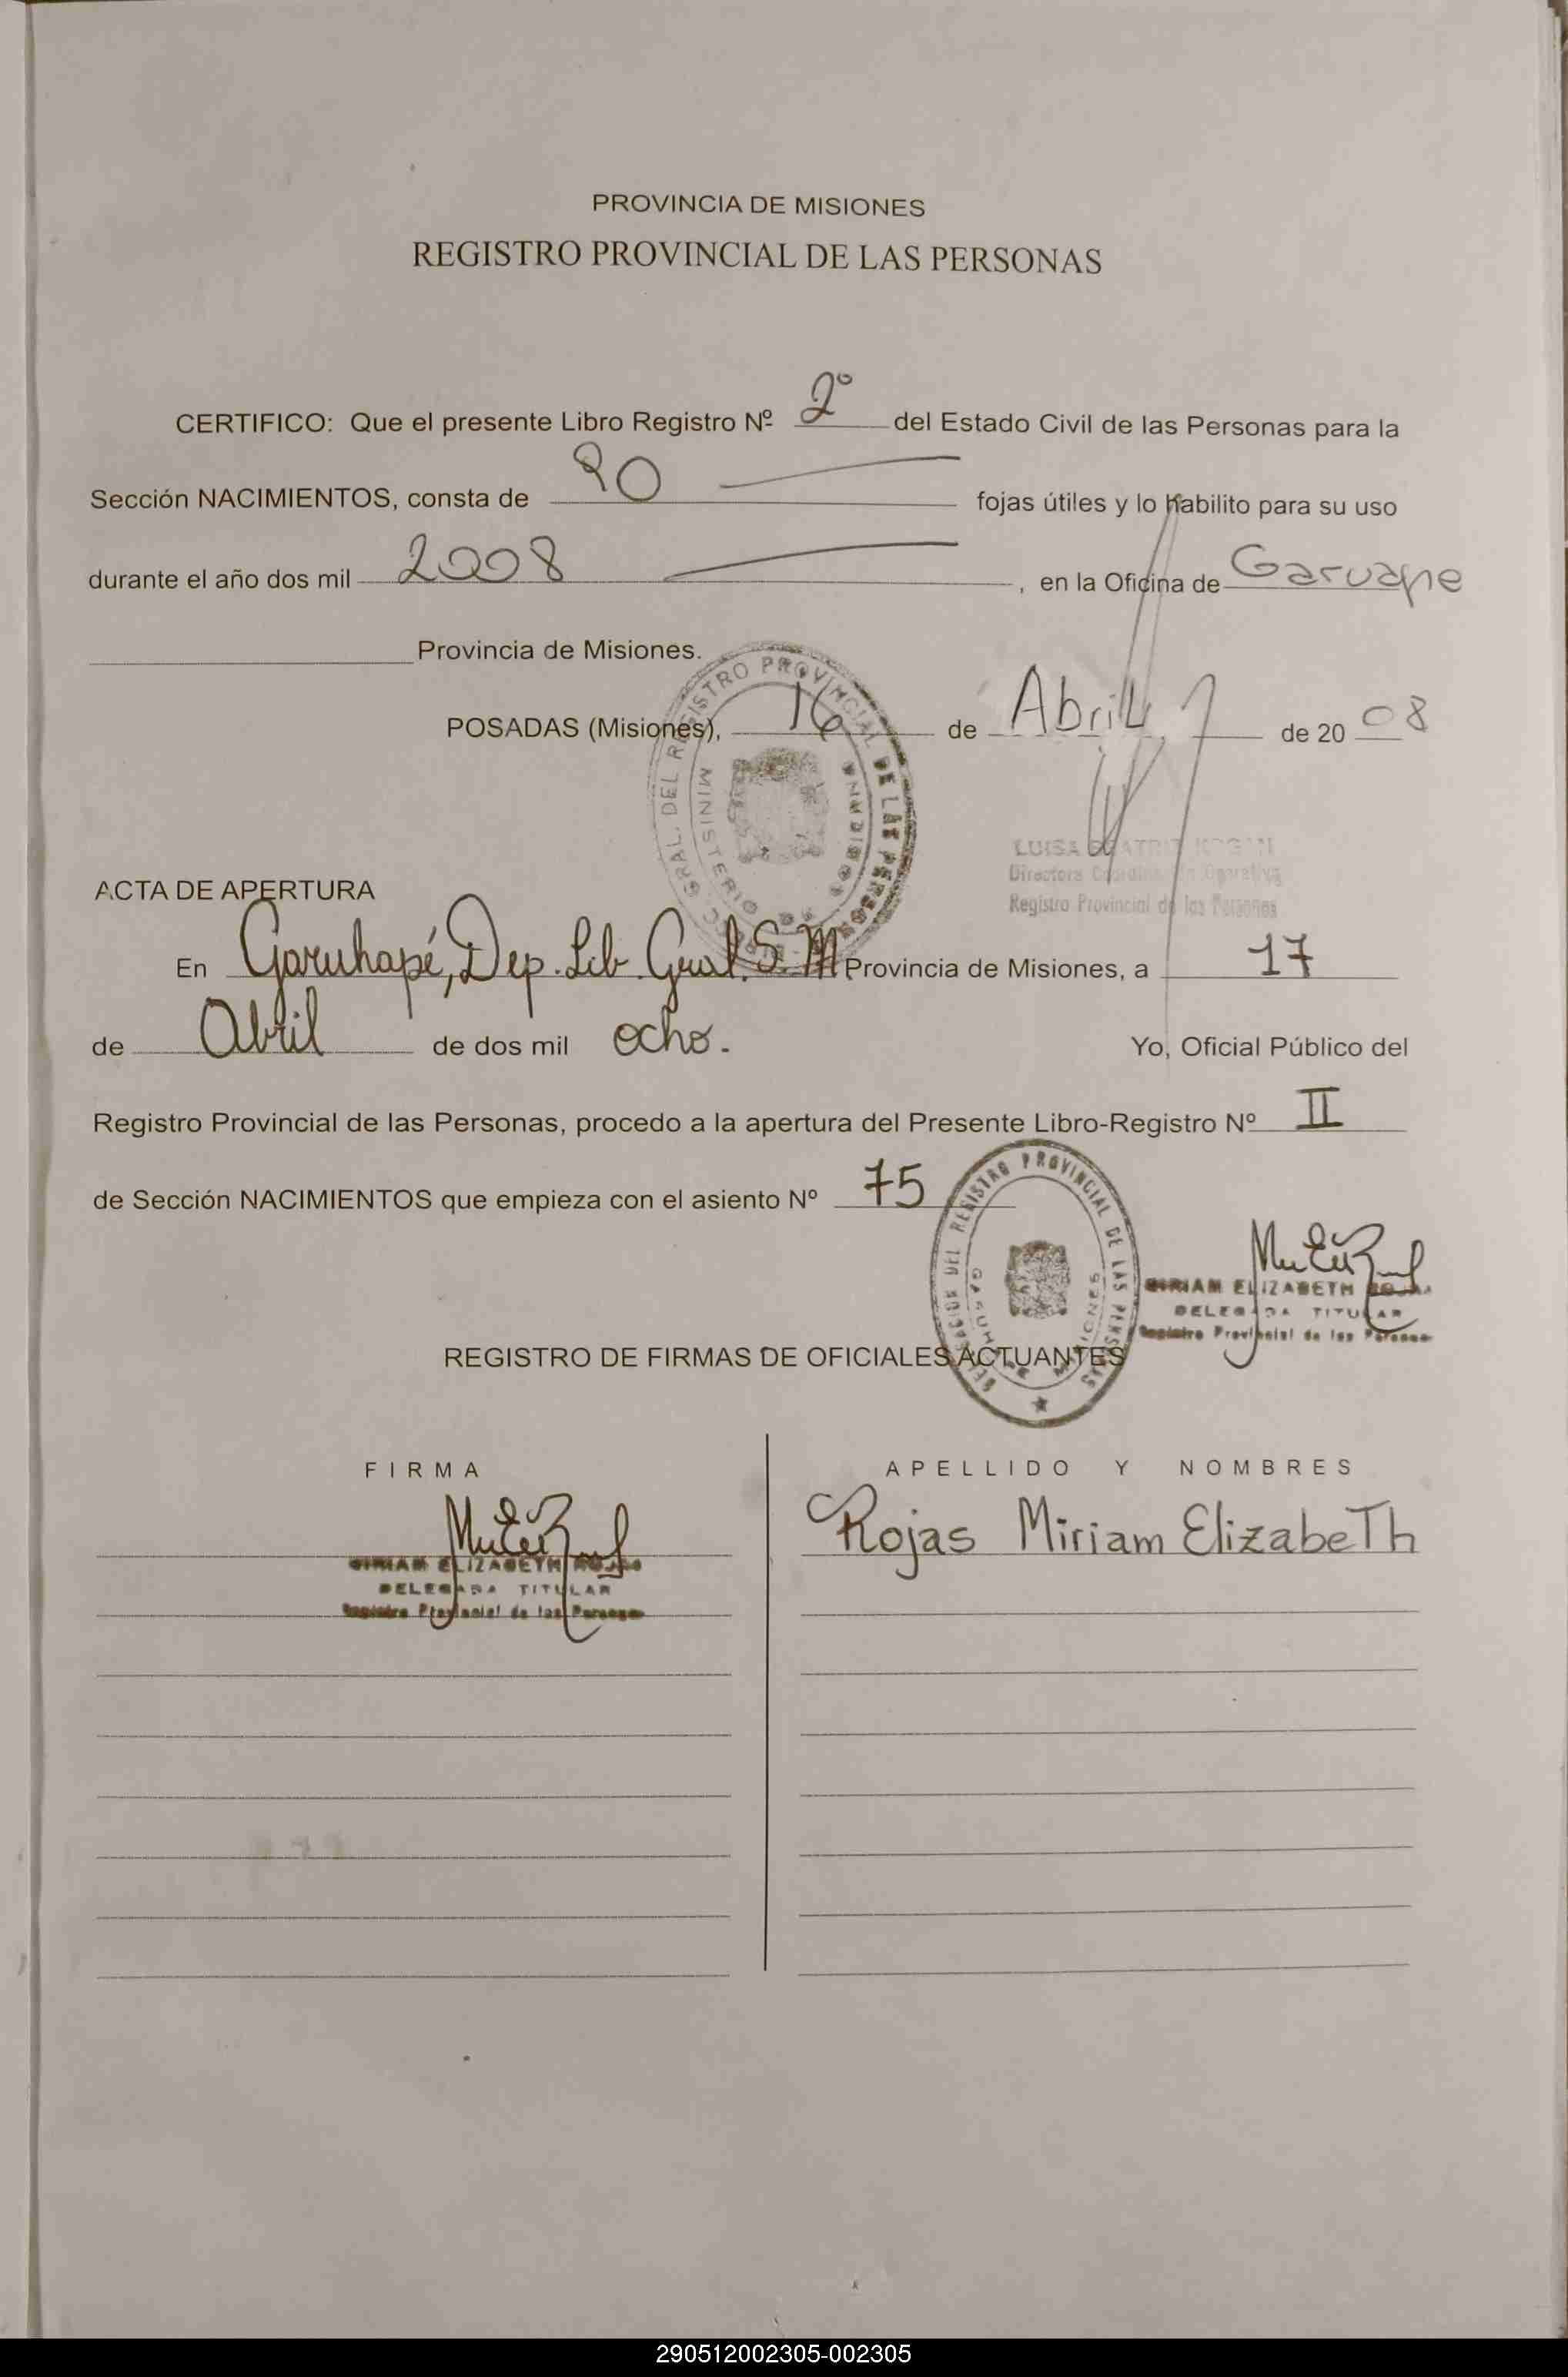 PROVINCIA DE MISIONES
REGISTRO PROVINCIAL DE LAS PERSONAS
CERTIFICO: Que el presente Libro Registro Nº 2º del Estado Civil de las Personas para la
Sección NACIMIENTOS, consta de 90 fojas útiles y lo habilito para su uso
durante el año dos mil 2008, en la Oficina de Garuape
Provincia de Misiones.
POSADAS (Misiones), 16 de Abril de 20 08
GRAL. DEL REGISTRO PROVINCIAL DE LAS PERSONAS
MINISTERIO
LUISA
Registro Provincial de las Personas
ACTA DE APERTURA
En Garuhapé, Dep. Lib. Gral. S. M. Provincia de Misiones, a 17
de Abril de dos mil ocho. Yo, Oficial Público del
Registro Provincial de las Personas, procedo a la apertura del Presente Libro-Registro Nº II
de Sección NACIMIENTOS que empieza con el asiento Nº 75
DEL REGISTRO PROVINCIAL DE LAS PERSONAS
MISIONES
MIRIAM ELIZABETH ROJAS
DELEGADA TITULAR
Registro Provincial de las Personas
REGISTRO DE FIRMAS DE OFICIALES ACTUANTES
FIRMA APELLIDO Y NOMBRES
Rojas Miriam Elizabeth
MIRIAM ELIZABETH ROJAS
DELEGADA TITULAR
Registro Provincial de las Personas
290512002305-002305